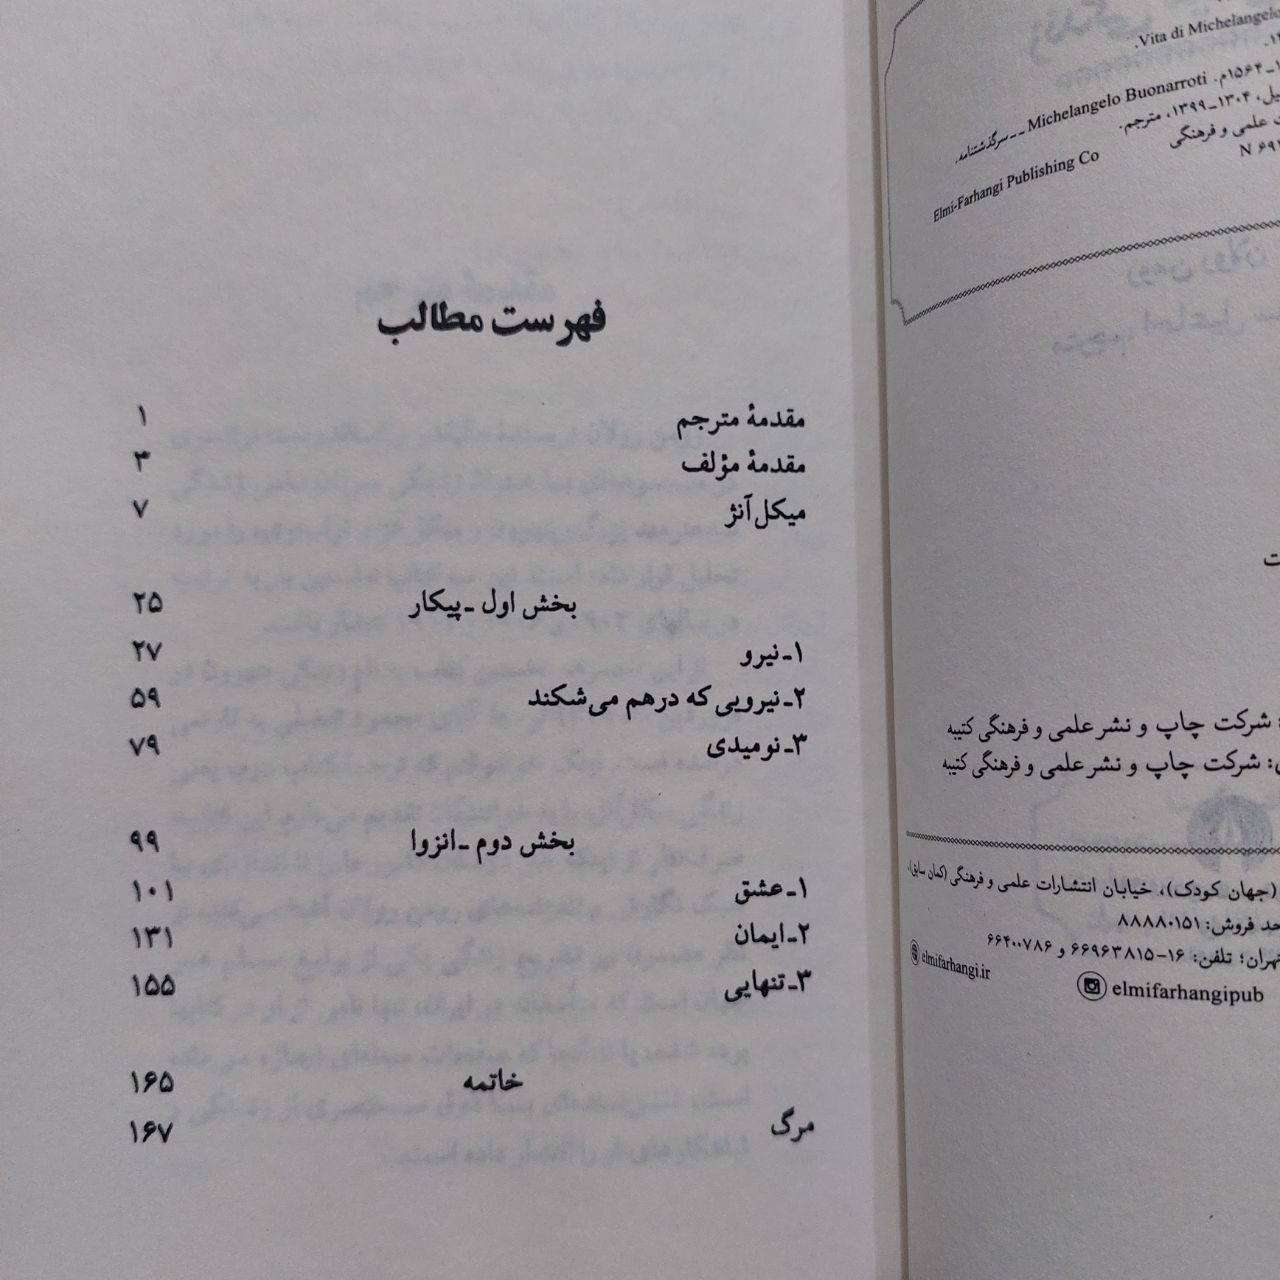 فهرست مطالب
مقدمهٔ مترجم ۱
مقدمهٔ مؤلف ۳
میکل‌آنژ ۷
بخش اول ـ پیکار ۲۵
۱ـ نیرو ۲۷
۲ـ نیرویی که درهم می‌شکند ۵۹
۳ـ نومیدی ۷۹
بخش دوم ـ انزوا ۹۹
۱ـ عشق ۱۰۱
۲ـ ایمان ۱۳۱
۳ـ تنهایی ۱۵۵
خاتمه ۱۶۵
مرگ ۱۶۷
Vita di Michelangelo.
ـ۱۵۶۴م. Michelangelo Buonarroti ـ ـ سرگذشتنامه.
۱۳۰۴ـ۱۳۹۹، مترجم.
علمی و فرهنگی
Elmi-Farhangi Publishing Co
شرکت چاپ و نشر علمی و فرهنگی کتیبه
شرکت چاپ و نشر علمی و فرهنگی کتیبه
(جهان کودک)، خیابان انتشارات علمی و فرهنگی (کمان سابق)،
فروش: ۸۸۸۸۰۱۵۱
تلفن: ۱۶-۶۶۹۶۳۸۱۵ و ۶۶۴۰۰۷۸۶
elmifarhangi.ir
elmifarhangipub